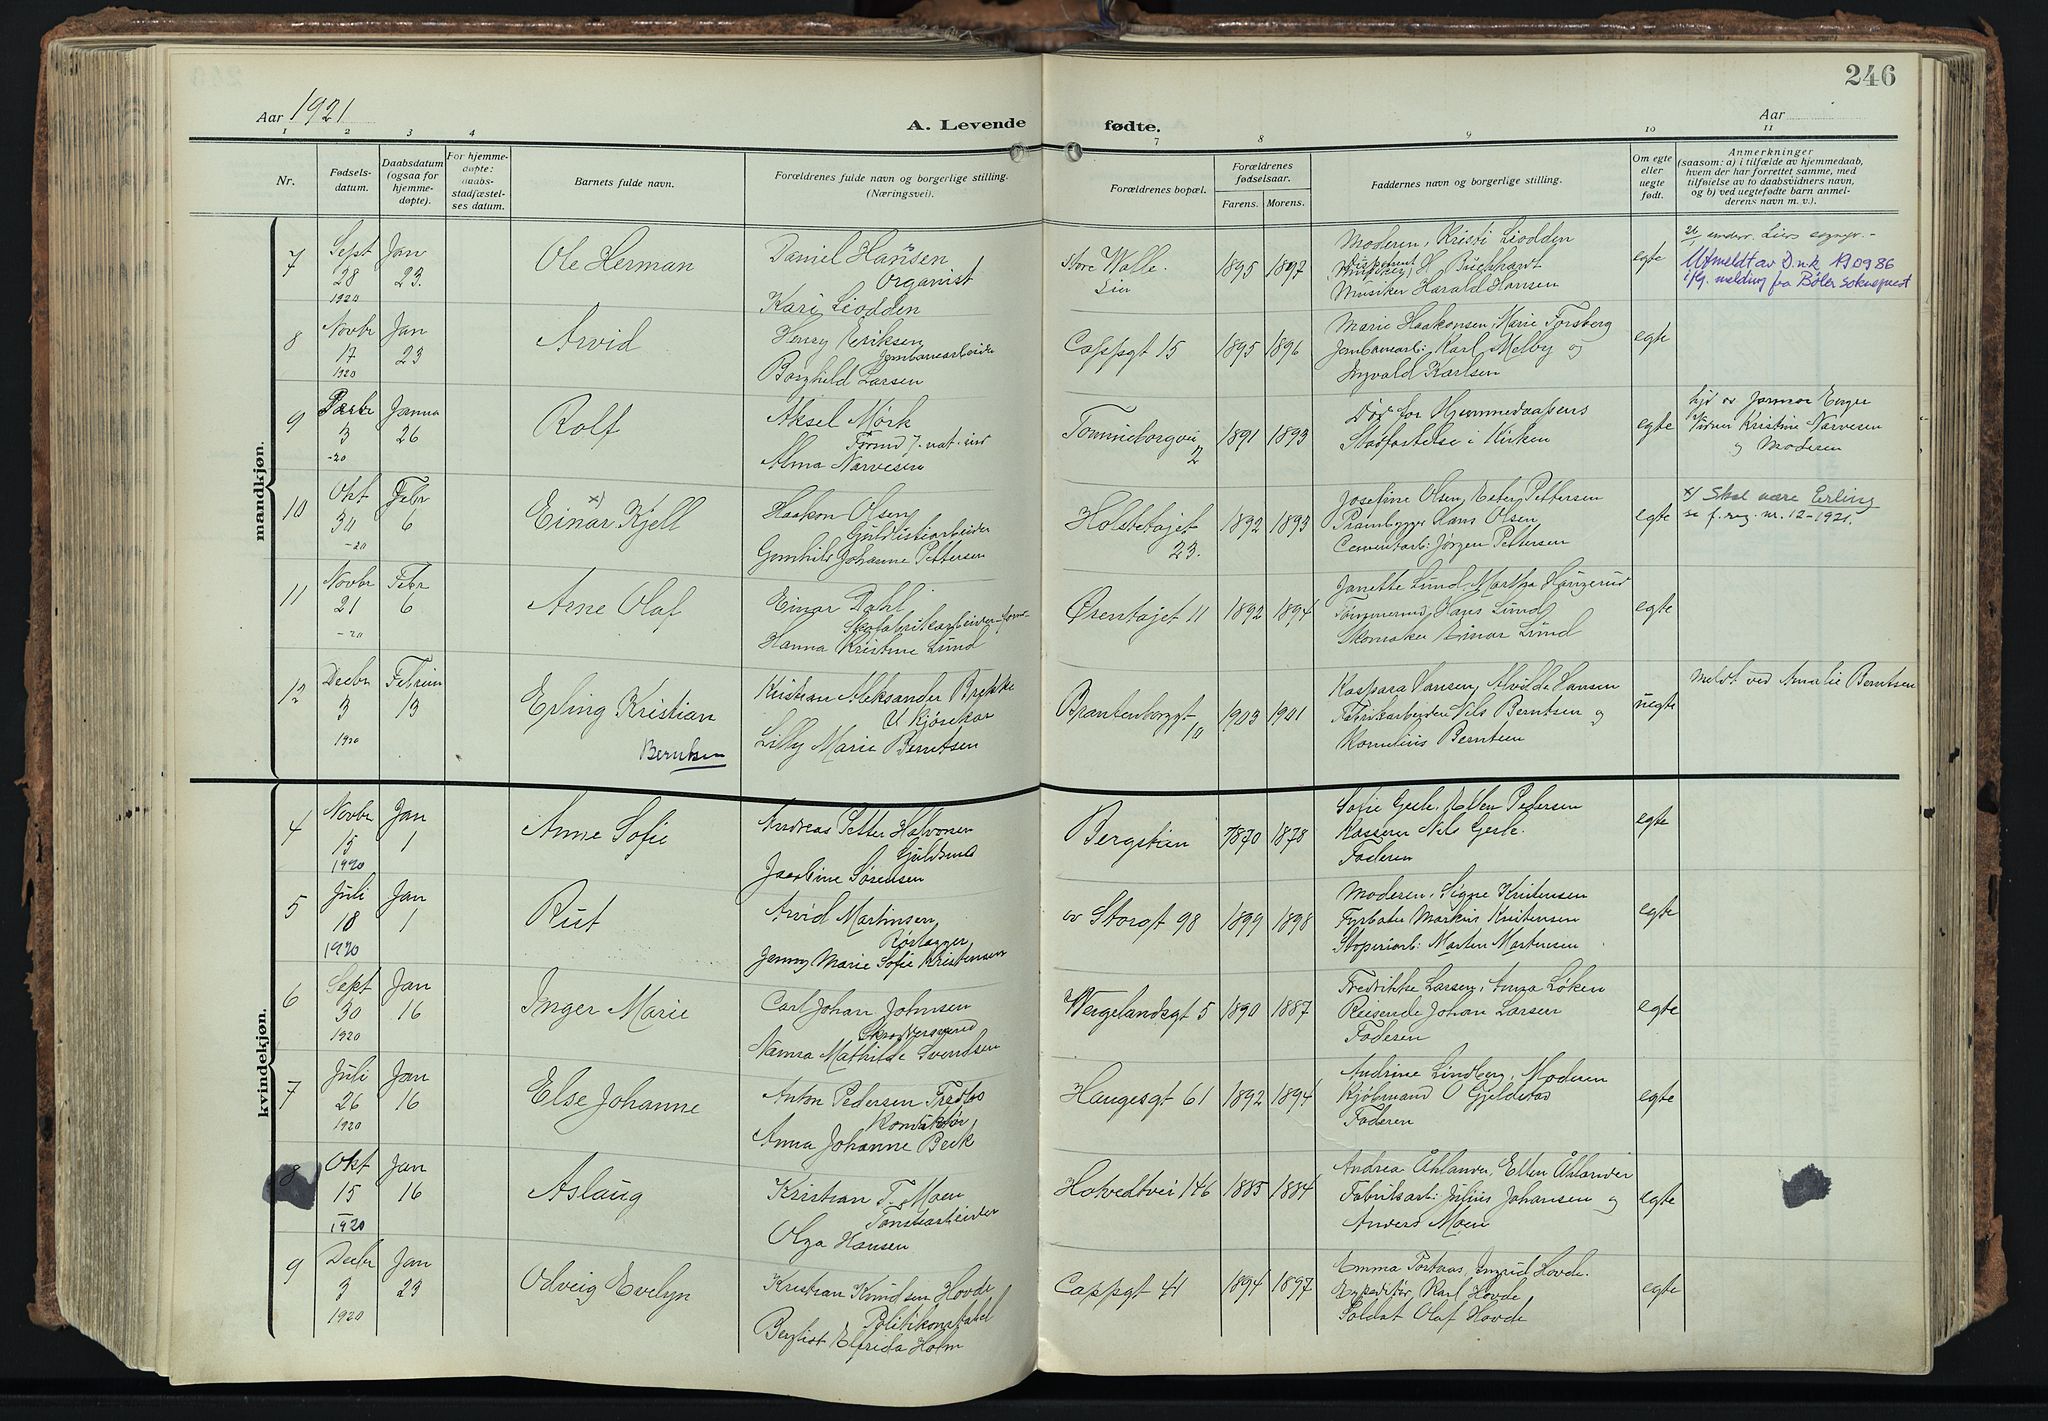 246
Aar 1921
A. Levende fødte.
Aar
1 2 3 4 7 8 9 10 11
Nr.
Fødsels-
datum.
Daabsdatum
(ogsaa for
hjemme-
døpte).
For hjemme-
døpte:
daabs-
stadfæstel-
ses datum.
Barnets fulde navn.
Forældrenes fulde navn og borgerlige stilling.
(Næringsvei).
Forældrenes bopæl.
Forældrenes
fødselsaar.
Farens. Morens.
Faddernes navn og borgerlige stilling.
Om egte
eller
uegte
født.
Anmerkninger
(saasom: a) i tilfælde av hjemmedaab,
hvem der har forrettet samme, med
tilføielse av to daabsvidners navn,
og b) ved uegtefødte barn anmel-
derens navn m. v.).
mandkjøn.
7
Sept
28
1920
Jan
23.
Ole Herman
Daniel Hansen
Organist
Kari Liodden
Store Walle
Lier
1895 1897
Moderen, Kristi Liodden
H Buchhardt
Musiker Harald Hansen
egte
Utmeldt av D.n.k 190986
ifg. melding fra Bøler sokneprest
8
Novbr
17
1920
Jan
23
Arvid
Henry Eriksen
Jernbanearbeider
Borghild Larsen
Cappsgt 15
1895 1896
Marie Haakonsen, Marie Forsberg
Jernbanearb: Karl Melby og
Ingvald Karlsen
egte
9
3
-20
Janua
26
Rolf
Aksel Mørk
Alma Narvesen
Tomineborgvei
2
1891 1893
Død før Hjemmedaapens
Stadfæstelse i Kirken
egte
Hjd av Jormor Enger
Vidner Kristine Narvesen
og Moderen
10
Okt
30
-20
Febr
6
Einar x) Kjell
Haakon Olsen
Guldlistarbeider
Gunhild Johanne Pettersen
Holstetøjet
23.
1892 1893
Josefine Olsen, Ester Pettersen
Hans Olsen
Cementarb: Jørgen Pettersen
egte
x) Skal være Erling
se f.reg. nr. 12-1921.
11
Novbr
21
-20
Febr
6
Arne Olaf
Einar Dahl
Hanna Kristine Lund
Ørentøjet 11
1892 1894
Janette Lund, Martha Haugerud
Tømmermd, Hans Lund
Skomaker Einar Lund
egte
12
Decbr
3
1920
13
Erling Kristian
Berntsen
Kristian Aleksander Brekke
Lilly Marie Berntsen
Brantenborggt
10
1903 1901
Kaspara Hansen, Alvilde Hansen
Fabrikarbeider Nils Berntsen og
Kornelius Berntsen
uegte
Meldt ved Amalie Berntsen
kvindekjøn.
4
Novbr
15
1920
Jan
1
Anne Sofie
Andreas Petter Halvorsen
Guldsmed
Jacobine Sørensen
Bergstien
1870 1878
Sofie Gesle, Ellen Pedersen
Kasserer Nils Gesle.
Faderen
egte
5
Juli
18
1920
Jan
1
Rut
Arvid Martinsen,
Rørlegger
Jenny Marie Sofie Kristensen
øv Storgt 98
1899 1898
Moderen, Signe Kristensen
Fyrbøter Markus Kristensen
Støperiarb: Morten Martensen
egte
6
Sept
30
1920
Jan
16
Inger Marie
Carl Johan Johnsen
Nanna Mathilde Svendsen
Wergelandsgt 5
1890 1887
Fredrikke Larsen, Anna Løken
Reisende Johan Larsen
Faderen
egte
7
Juli
26
1920
Jan
16
Else Johanne
Anton Pedersen Tredbo
Konduktør
Anna Johanne Brek
Haugesgt 61
1892 1894
Andrine Lindberg, Moderen
Kjøbmand O Gjeldstad
Faderen
egte
8
Okt
15
1920
Jan
16
Aslaug
Kristian T. Moen
Olga Hansen
Hotvedtvei 146
1885 1884
Andrea Åhlander, Ellen Åhlander
Fabriksarb: Julius Johansen og
Anders Moen
egte
9
Decbr
3
1920
Jan
23
Odveig Evelyn
Kristian Knudsen Hovde
Politikonstabel
Bergliot Elfrida Holm
Cappsgt 41
1894 1897
Emma Portaas, Ingrid Hovde.
Expeditør, Karl Hovde
Soldat Olaf Hovde
egte